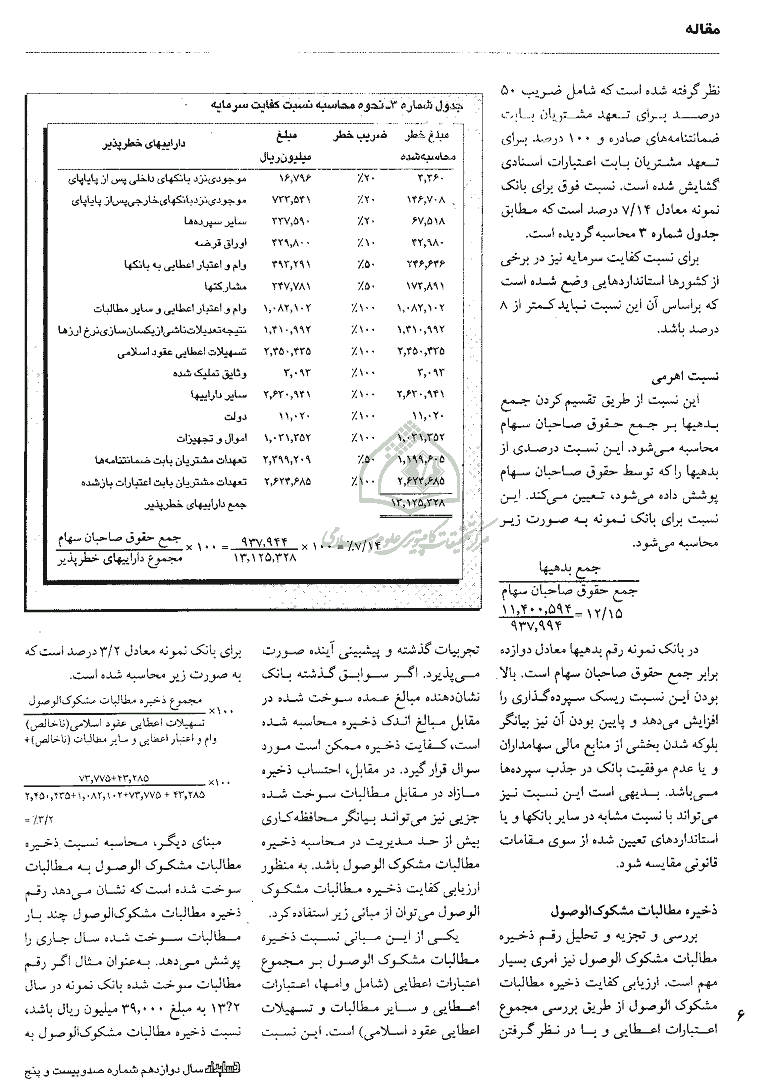 مقاله
نظر گرفته شده است که شامل ضریب ۵۰
درصد برای تعهد مشتریان بابت
ضمانتنامه‌های صادره و ۱۰۰ درصد برای
تعهد مشتریان بابت اعتبارات اسنادی
گشایش شده است. نسبت فوق برای بانک
نمونه معادل ۷/۱۴ درصد است که مطابق
جدول شماره ۳ محاسبه گردیده است.
برای نسبت کفایت سرمایه نیز در برخی
از کشورها استانداردهایی وضع شده است
که براساس آن این نسبت نباید کمتر از ۸
درصد باشد.
نسبت اهرمی
این نسبت از طریق تقسیم کردن جمع
بدهیها بر جمع حقوق صاحبان سهام
محاسبه می‌شود. این نسبت درصدی از
بدهیها را که توسط حقوق صاحبان سهام
پوشش داده می‌شود، تعیین می‌کند. این
نسبت برای بانک نمونه به صورت زیر
محاسبه می‌شود.
جمع بدهیها
جمع حقوق صاحبان سهام
۱۱,۴۰۰,۵۹۴ / ۹۳۷,۹۹۴ = ۱۲/۱۵
جدول شماره ۳ـ نحوه محاسبه نسبت کفایت سرمایه
داراییهای خطرپذیر مبلغ میلیون ریال ضریب خطر مبلغ خطر محاسبه‌شده
موجودی نزد بانکهای داخلی پس از پایاپای ۱۶,۷۹۶ ٪۲۰ ۳,۳۶۰
موجودی نزد بانکهای خارجی پس از پایاپای ۷۳۳,۵۴۱ ٪۲۰ ۱۴۶,۷۰۸
سایر سپرده‌ها ۳۳۷,۵۹۰ ٪۲۰ ۶۷,۵۱۸
اوراق قرضه ۴۲۹,۸۰۰ ٪۱۰ ۴۲,۹۸۰
وام و اعتبار اعطایی به بانکها ۴۹۳,۲۹۱ ٪۵۰ ۲۴۶,۶۴۶
مشارکتها ۳۴۷,۷۸۱ ٪۵۰ ۱۷۳,۸۹۱
وام و اعتبار اعطایی و سایر مطالبات ۱,۰۸۲,۱۰۲ ٪۱۰۰ ۱,۰۸۲,۱۰۲
نتیجه تعدیلات ناشی از یکسان‌سازی نرخ ارزها ۱,۴۱۰,۹۹۲ ٪۱۰۰ ۱,۴۱۰,۹۹۲
تسهیلات اعطایی عقود اسلامی ۲,۴۵۰,۴۳۵ ٪۱۰۰ ۲,۴۵۰,۴۳۵
وثایق تملیک شده ۳,۰۹۳ ٪۱۰۰ ۳,۰۹۳
سایر داراییها ۲,۶۳۰,۹۴۱ ٪۱۰۰ ۲,۶۳۰,۹۴۱
دولت ۱۱,۰۲۰ ٪۱۰۰ ۱۱,۰۲۰
اموال و تجهیزات ۱,۰۳۱,۳۵۲ ٪۱۰۰ ۱,۰۳۱,۳۵۲
تعهدات مشتریان بابت ضمانتنامه‌ها ۲,۳۹۹,۲۰۹ ٪۵۰ ۱,۱۹۹,۶۰۵
تعهدات مشتریان بابت اعتبارات بازشده ۲,۶۲۴,۶۸۵ ٪۱۰۰ ۲,۶۲۴,۶۸۵
جمع داراییهای خطرپذیر ۱۳,۱۲۵,۳۲۸
جمع حقوق صاحبان سهام / مجموع داراییهای خطرپذیر × ۱۰۰ = ۹۳۷,۹۴۴ / ۱۳,۱۲۵,۳۲۸ × ۱۰۰ = ٪۷/۱۴
در بانک نمونه رقم بدهیها معادل دوازده
برابر جمع حقوق صاحبان سهام است. بالا
بودن این نسبت ریسک سپرده‌گذاری را
افزایش می‌دهد و پایین بودن آن نیز بیانگر
بلوکه شدن بخشی از منابع مالی سهامداران
و یا عدم موفقیت بانک در جذب سپرده‌ها
می‌باشد. بدیهی است این نسبت نیز
می‌تواند با نسبت مشابه در سایر بانکها و یا
استانداردهای تعیین شده از سوی مقامات
قانونی مقایسه شود.
ذخیره مطالبات مشکوک‌الوصول
بررسی و تجزیه و تحلیل رقم ذخیره
مطالبات مشکوک الوصول نیز امری بسیار
مهم است. ارزیابی کفایت ذخیره مطالبات
مشکوک الوصول از طریق بررسی مجموع
اعتبارات اعطایی و با در نظر گرفتن
تجربیات گذشته و پیشبینی آینده صورت
می‌پذیرد. اگر سوابق گذشته بانک
نشان‌دهنده مبالغ عمده سوخت شده در
مقابل مبالغ اندک ذخیره محاسبه شده
است، کفایت ذخیره ممکن است مورد
سوال قرار گیرد. در مقابل، احتساب ذخیره
مازاد در مقابل مطالبات سوخت شده
جزیی نیز می‌تواند بیانگر محافظه‌کاری
بیش از حد مدیریت در محاسبه ذخیره
مطالبات مشکوک الوصول باشد. به منظور
ارزیابی کفایت ذخیره مطالبات مشکوک
الوصول می‌توان از مبانی زیر استفاده کرد.
یکی از این مبانی نسبت ذخیره
مطالبات مشکوک الوصول بر مجموع
اعتبارات اعطایی (شامل وامها، اعتبارات
اعطایی و سایر مطالبات و تسهیلات
اعطایی عقود اسلامی) است. این نسبت
برای بانک نمونه معادل ۳/۲ درصد است که
به صورت زیر محاسبه شده است.
مجموع ذخیره مطالبات مشکوک‌الوصول
×۱۰۰
تسهیلات اعطایی عقود اسلامی(ناخالص)
وام و اعتبار اعطایی و سایر مطالبات (ناخالص)+
۷۳,۷۷۵+۴۳,۲۸۵
×۱۰۰
۲,۴۵۰,۴۳۵+۱,۰۸۲,۱۰۲+۷۳,۷۷۵ + ۴۳,۲۸۵
= ٪۳/۲
مبنای دیگر، محاسبه نسبت ذخیره
مطالبات مشکوک الوصول به مطالبات
سوخت شده است که نشان می‌دهد رقم
ذخیره مطالبات مشکوک‌الوصول چند بار
مطالبات سوخت شده سال جاری را
پوشش می‌دهد. به‌عنوان مثال اگر رقم
مطالبات سوخت شده بانک نمونه در سال
۱۳?۲ به مبلغ ۳۹,۰۰۰ میلیون ریال باشد،
نسبت ذخیره مطالبات مشکوک‌الوصول به
۶
حسابدار سال دوازدهم شماره صدوبیست و پنج